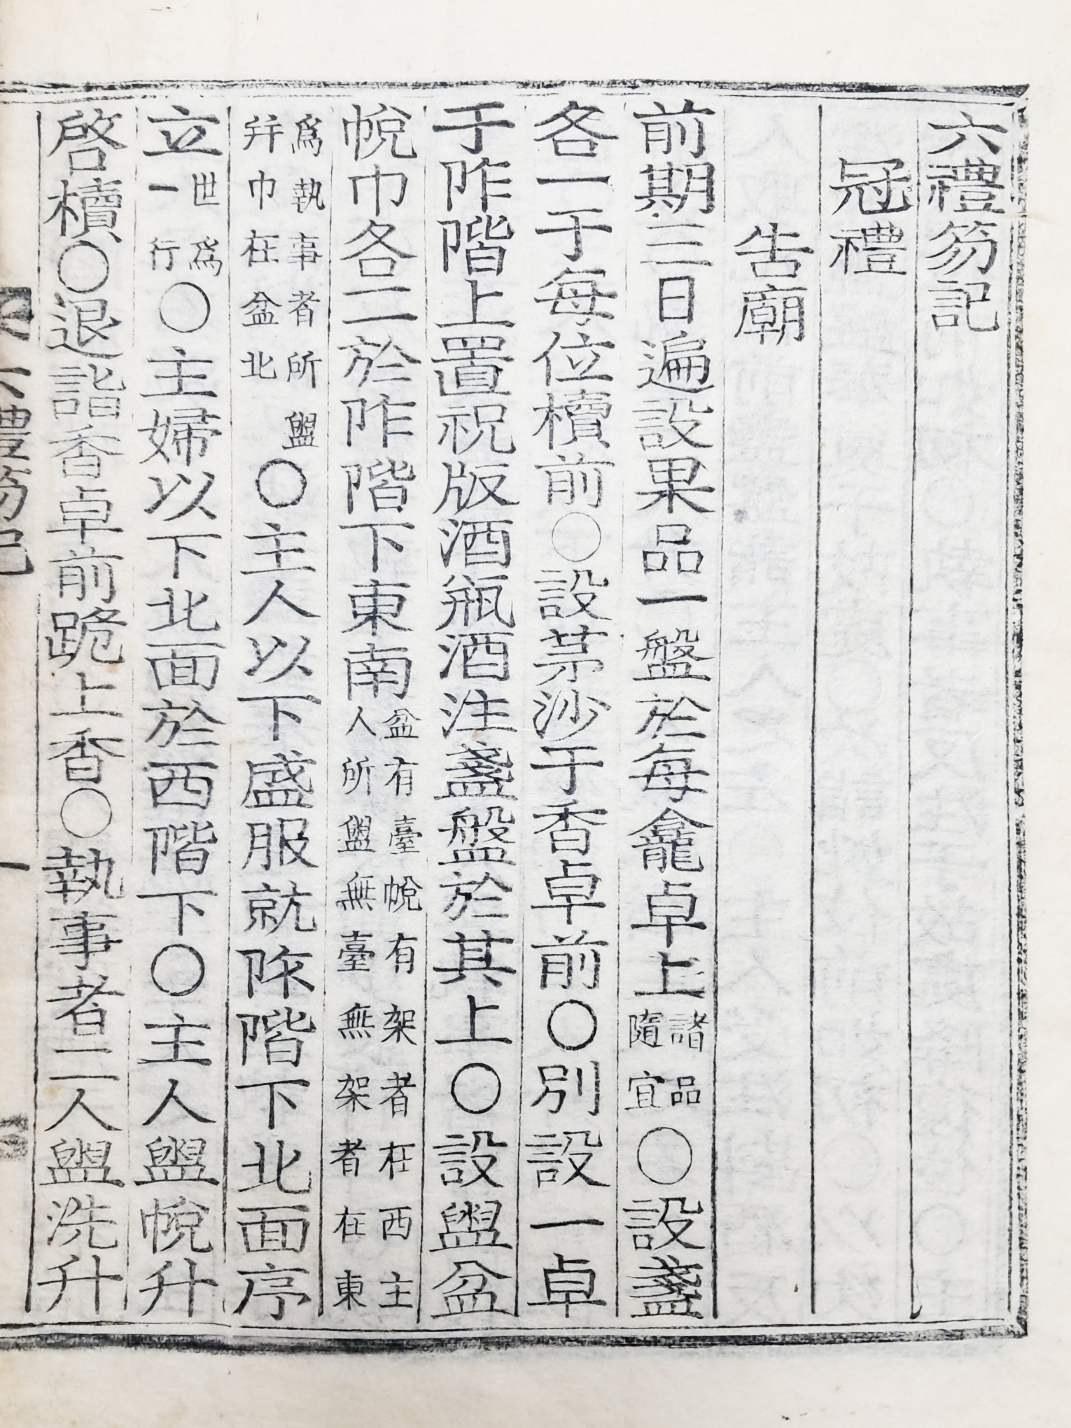 六禮笏記
冠禮
告廟
前期三日遍設果品一盤於每龕卓上諸品隨宜〇設盞
各一于每位櫝前〇設茅沙于香卓前〇別設一卓
于阼階上置祝版酒瓶酒注盞盤於其上〇設盥盆
帨巾各二於阼階下東南盆有臺帨有架者在西主人所盥無臺無架者在東
爲執事者所盥并巾在盆北〇主人以下盛服就阼階下北面序
立世爲一行〇主婦以下北面於西階下〇主人盥帨升
啓櫝〇退詣香卓前跪上香〇執事者二人盥洗升
六禮笏記
一